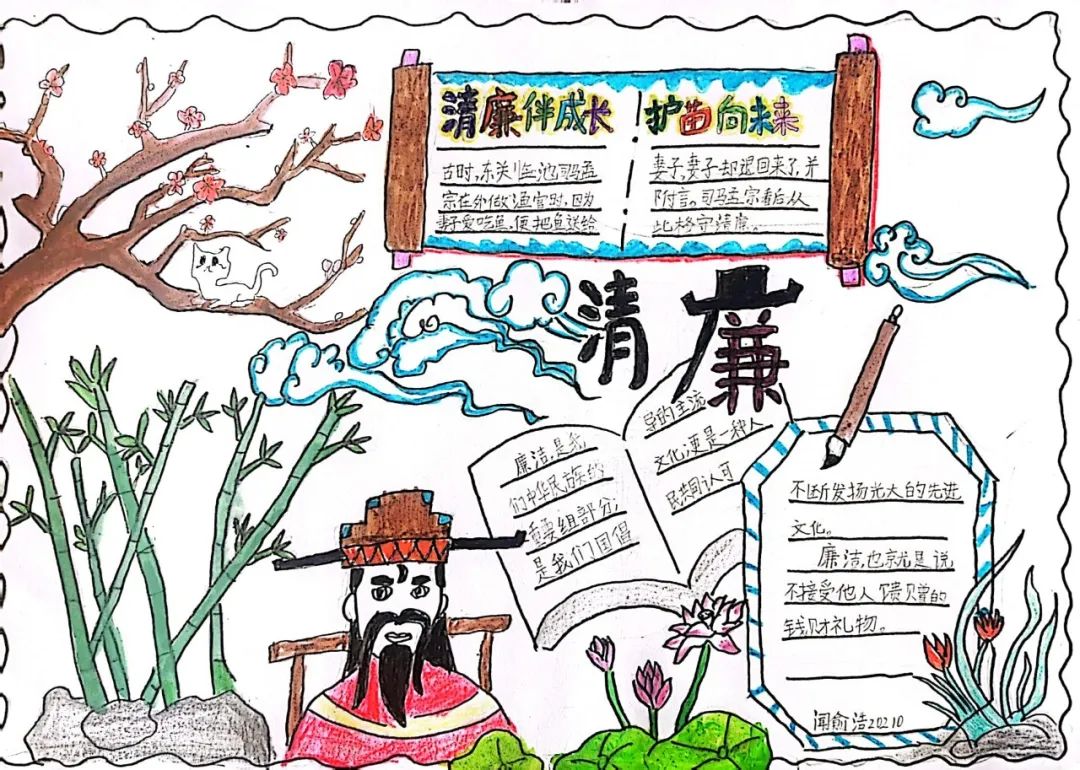 清廉伴成长
古时,东关监池司马孟
宗在外做渔官时,因为
妻子爱吃鱼,便把鱼送给
护苗向未来
妻子,妻子却退回来了,并
附言。司马孟宗看后从
此格守清廉。
清廉
廉洁,是我
们中华民族的
重要组部分,
是我们国倡
导的主流
文化,更是一种人
民共同认可
不断发扬光大的先进
文化。
廉洁,也就是说,
不接受他人馈赠的
钱财礼物。
闻俞洁20210